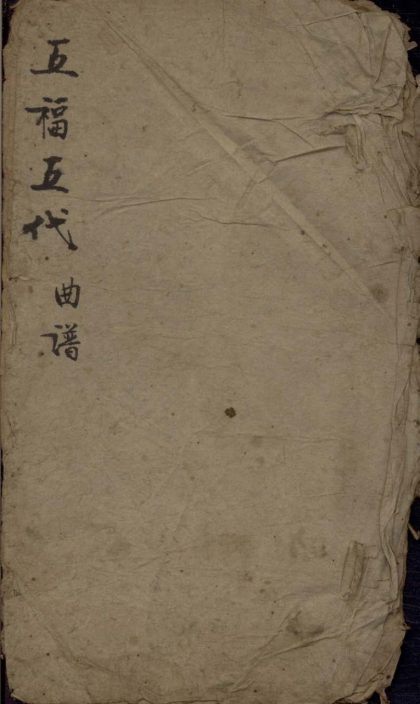 五福五代 曲谱